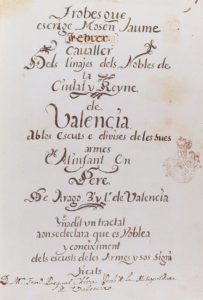 Trobes que
escrigè Mosen Jaume
Febrer
Cavaller
Dels linajes dels Nobles de
la
Ciutat y Reyne
de
Valencia
Ab los Escuts e divises deles sues
armes
Al Infant En
Pere
De Arago. Ey L. de Valencia
Ynadit un tractat
a on se declara que es Noblea
y coneiximent
dels escuts deles Armes y sos signi
ficats